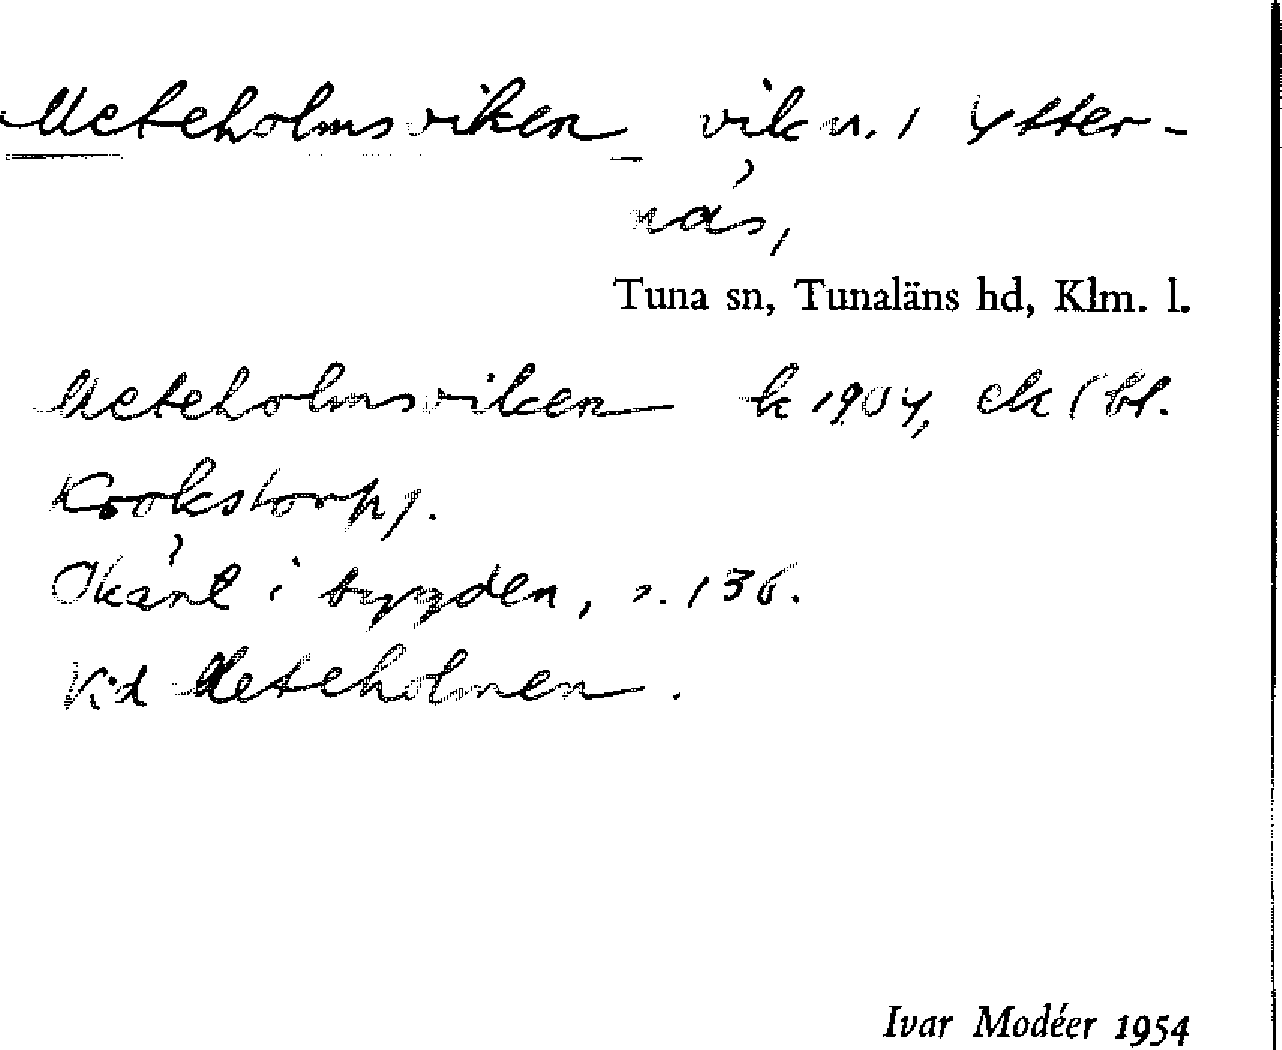 Meteholmsviken vik n. i Ytter-
näs,
Tuna sn, Tunaläns hd, Klm. l.
Meteholmsviken k 1904, ek (bl.
Krokstorp).
Okänt i bygden, s. 136.
Vid Meteholmen.
Ivar Modéer 1954